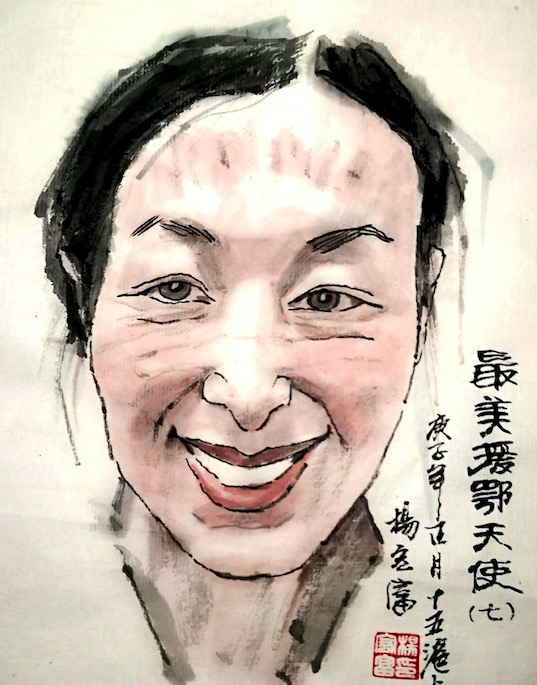 最美援鄂天使(七)
庚子年正月十五滬上
楊宝富